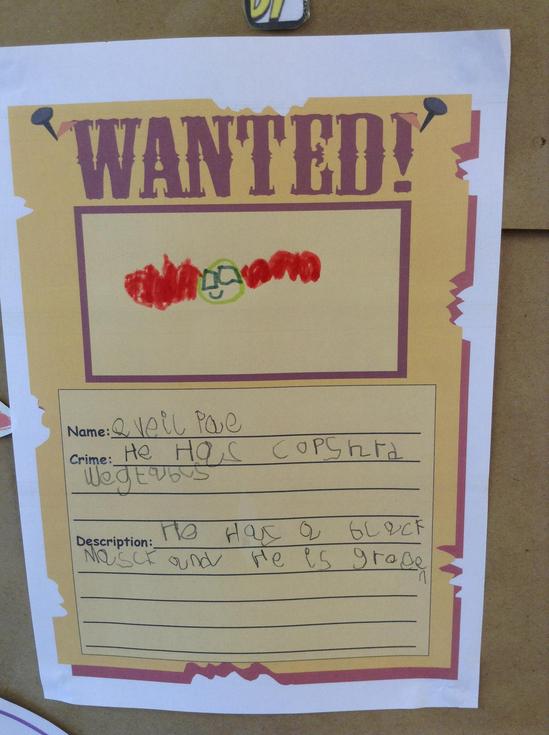 WANTED!
Name: a veil Pae
Crime: He Has copshrd
wegtabls
Description: He Has a black
Masck and He is green